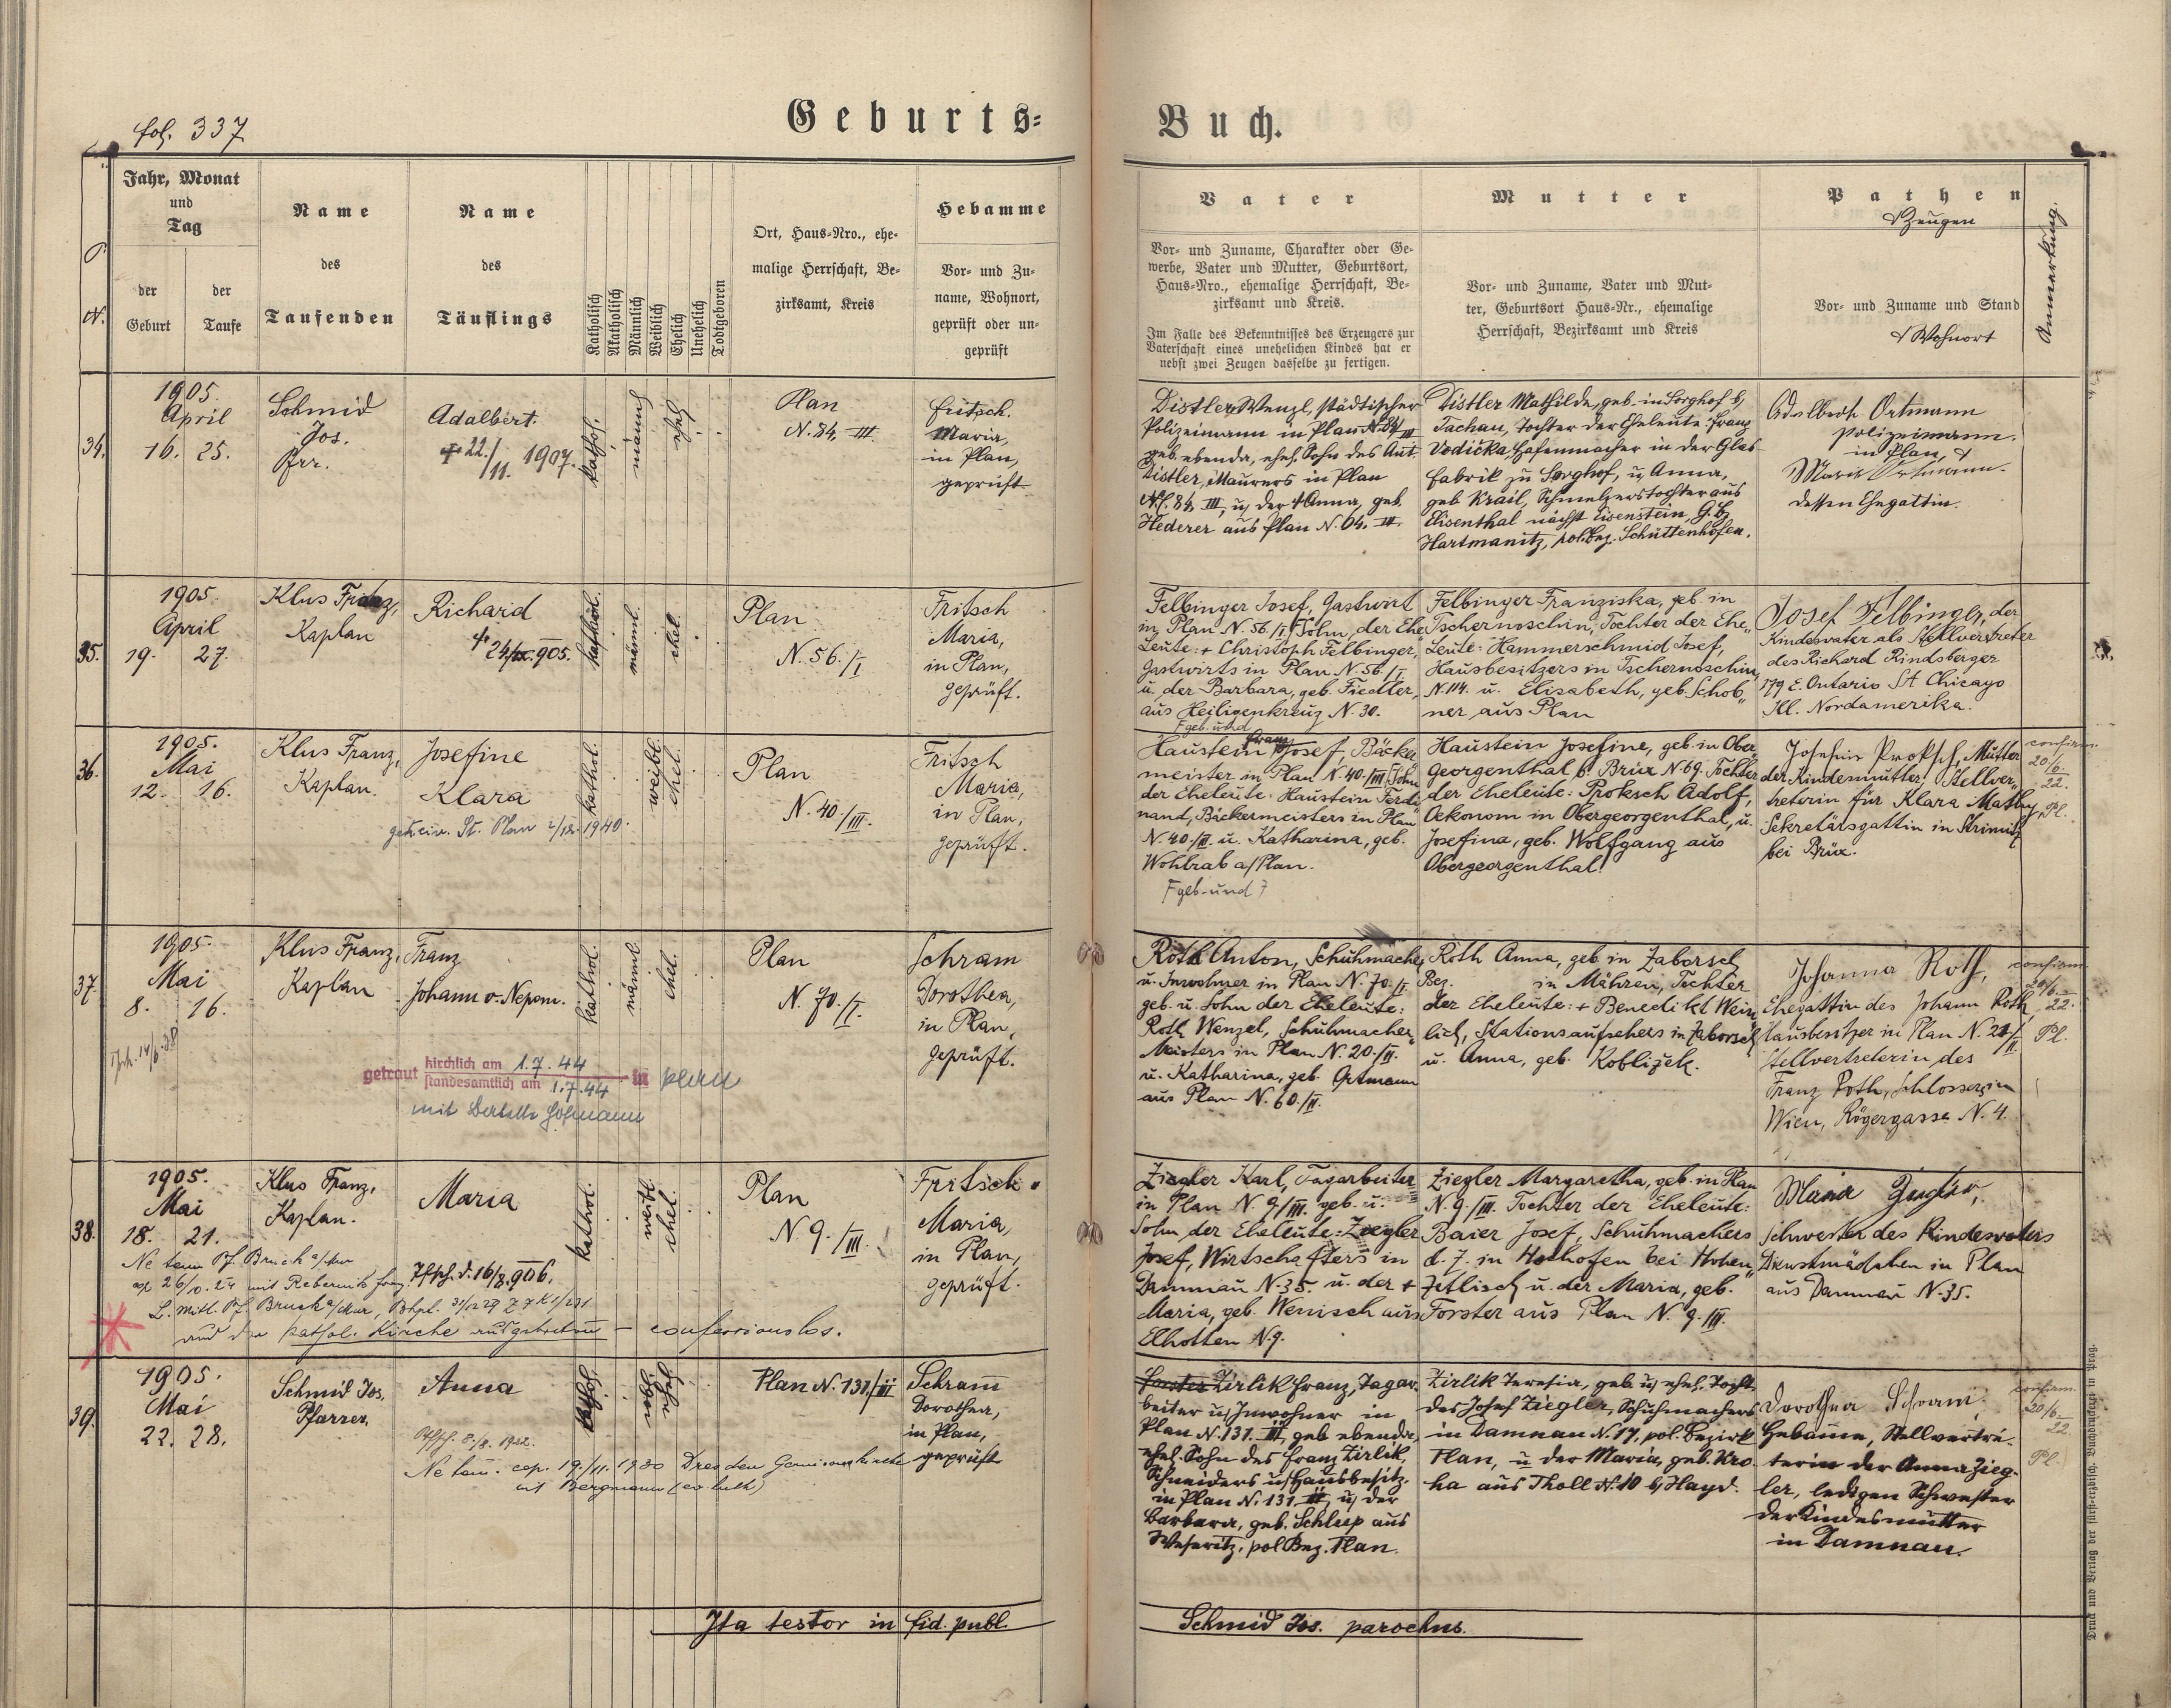 fol. 337
Geburts-
Buch.
P.
N.
Jahr, Monat
und
Tag
der
Geburt
der
Taufe
Name
des
Taufenden
Name
des
Täuflings
Katholisch
Akatholisch
Männlich
Weiblich
Ehelich
Unehelich
Todtgeboren
Ort, Haus-Nro., ehe-
malige Herrschaft, Be-
zirksamt, Kreis
Hebamme
Vor- und Zu-
name, Wohnort,
geprüft oder un-
geprüft
Vater
Vor- und Zuname, Charakter oder Ge-
werbe, Vater und Mutter, Geburtsort,
Haus-Nro., ehemalige Herrschaft, Be-
zirksamt und Kreis.
Im Falle des Bekenntnisses des Erzeugers zur
Vaterschaft eines unehelichen Kindes hat er
nebst zwei Zeugen dasselbe zu fertigen.
Mutter
Vor- und Zuname, Vater und Mut-
ter, Geburtsort Haus-Nr., ehemalige
Herrschaft, Bezirksamt und Kreis
Pathen
& Zeugen
Vor- und Zuname und Stand
& Wohnort
Anmerkung.
34.
1905.
April
16. 25.
Schmid
Jos.
Pfr.
Adalbert.
+ 22./11. 1907.
kathol.
männl.
ehel.
Plan
N. 84, III
Fritsch.
Maria,
in Plan,
geprüft
Distler Wenzl, städtischer
Polizeimann in Plan N. 84/III
geb. ebenda, ehel. Sohn des Ant.
Distler, Maurers in Plan
N. 84, III, u. der + Anna, geb.
Hederer aus Plan N. 64. III.
Distler Mathilde, geb. in Sorghof b.
Tachau, Tochter der Eheleute: Franz
Vodička, Hafenmacher in der Glas-
fabrik zu Sorghof, u. Anna,
geb. Krail, Schmelzerstochter aus
Elisenthal nächst Eisenstein, G.B.
Hartmanitz, pol. Bez. Schüttenhofen.
Adalbert Ortmann
Polizeimann.
in Plan, &
Marie Ortmann.
dessen Ehegattin.
35.
1905.
April
19. 27.
Klus Franz,
Kaplan
Richard
+ 24/IX. 905.
kathol.
männl.
ehel.
Plan
N. 56./I
Fritsch
Maria,
in Plan,
geprüft.
Felbinger Josef, Gastwirt
in Plan N. 56./I, Sohn der Ehe-
Leute: + Christoph Felbinger,
Gastwirts in Plan N. 56./I
u. der Barbara, geb. Fiedler,
aus Heiligenkreuz N. 30.
Felbinger Franziska, geb. in
Tschernoschin, Tochter der Ehe-
Leute: Hammerschmid Josef,
Hausbesitzers in Tschernoschin,
N. 114. u. Elisabeth, geb. Schob-
ner aus Plan
Josef Felbinger, der
Kindesvater als Stellvertreter
des Richard Rindsberger
179 E. Ontario St Chicago
Ill. Nordamerika.
36.
1905.
Mai
12. 16.
Klus Franz,
Kaplan.
Josefine
Klara
St. Plan 2/12. 1940.
kathol.
weibl.
ehel.
Plan
N. 40./III.
Fritsch
Maria,
in Plan,
geprüft.
Haustein Franz Josef, Bäcker-
meister in Plan N. 40./III, Sohn
der Eheleute: Haustein Ferdi-
nand, Bäckermeisters in Plan
N. 40./III. u. Katharina, geb.
Wohlrab a/Plan.
F geb. und 7
Haustein Josefine, geb. in Ober-
Georgenthal b. Brüx N. 69. Tochter
der Eheleute: Proksch Adolf,
Oekonom in Obergeorgenthal, u.
Josefina, geb. Wolfgang aus
Obergeorgenthal.
Josefine Proksch, Mutter
der Kindesmutter, Stellver-
treterin für Klara Mathy,
Sekretärsgattin in Strimitz
bei Brüx.
confirm.
20/6.
22.
Pl.
37.
1905.
Mai
8. 16.
Klus Franz,
Kaplan
Franz
Johann v. Nepom.
kathol.
männl.
ehel.
getraut kirchlich am 1.7.44
standesamtlich am 1.7.44 in Plan
mit Hofmann
Plan
N. 70./I.
Schram
Dorothea,
in Plan,
geprüft.
Roth Anton, Schuhmacher
u. Inwohner in Plan N. 70./I.
geb. u. Sohn der Eheleute:
Roth Wenzel, Schuhmacher-
Meisters in Plan N. 20./II.
u. Katharina, geb. Ortmann
aus Plan N. 60./II.
Roth Anna, geb. in Zaborsel
Bez. in Mähren, Tochter
der Eheleute: + Benedikt Wein-
lich, Stationsaufsehers in Zaborsel
u. Anna, geb. Koblizek.
Johanna Roth,
Ehegattin des Johann Roth
Hausbesitzer in Plan N. 20/II
Stellvertreterin des
Franz Roth, Schlosser in
Wien, Rögergasse N. 4.
confirm.
20/6.
22.
Pl.
38.
1905.
Mai
18. 21.
Klus Franz,
Kaplan.
Maria
kathol.
weibl.
ehel.
Ne tem. Pf. Bruck a/Mur
cop. 26/10. 24 mit
Tfsch. d. 16/8. 906.
L. Mitt. Pf. Bruck a/Mur,
aus der kathol. Kirche ausgetreten – confessionslos.
Plan
N. 9./III.
Fritsch
Maria,
in Plan,
geprüft.
Ziegler Karl, Tagarbeiter
in Plan N. 9/III. geb. u.
Sohn der Eheleute: Ziegler
Josef, Wirtschafters in
Damnau N. 35. u. der +
Maria, geb. Wenisch aus
Elhotten N. 9.
Ziegler Margaretha, geb. in Plan
N. 9./III. Tochter der Eheleute:
Baier Josef, Schuhmachers
d. Z. in Holhofen bei Hohen-
Zetlisch u. der Maria, geb.
Forster aus Plan N. 9./III.
Maria Ziegler,
Schwester des Kindesvaters
Dienstmädchen in Plan
aus Damnau N. 35.
39.
1905.
Mai
22. 28.
Schmid Jos,
Pfarrer,
Anna
Tfsch. 8./8. 1922.
Ne tem. cop. 19./11. 1930 Dresden Garnisonskirche
mit Bergmann (ev. luth)
Plan N. 131./III
Schram
Dorothea,
in Plan,
geprüft
Zirlik Franz, Tagar-
beiter u. Inwohner in
Plan N. 131. III, geb. ebenda,
ehel. Sohn des Franz Zirlik,
Schneiders u. Hausbesitz.
in Plan N. 131. III, u. der
Barbara, geb. Schleep aus
Weseritz, pol Bez. Plan.
Zirlik Teresia, geb. u. ehel. Tocht.
des Josef Ziegler, Schuhmachers
in Damnau N. 17, pol. Bezirk
Plan, u. der Maria, geb. Kro-
ha aus Tholl N. 10 b. Hayd.
Dorothea Schram,
Hebamme, Stellvertre-
terin der Anna Zieg-
ler, ledigen Schwester
der Kindesmutter
in Damnau.
confirm.
20/6.
22
Pl.
Ita testor in fid. publ.
Schmid Jos. parochus.